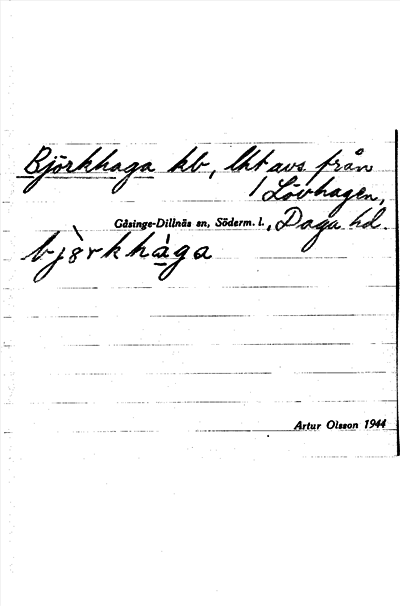 Björkhaga kb, lht avs. från
1 Lövhagen,
Gåsinge-Dillnäs sn, Söderm. l., Daga hd.
bjö̀rkhága
Artur Olsson 1944